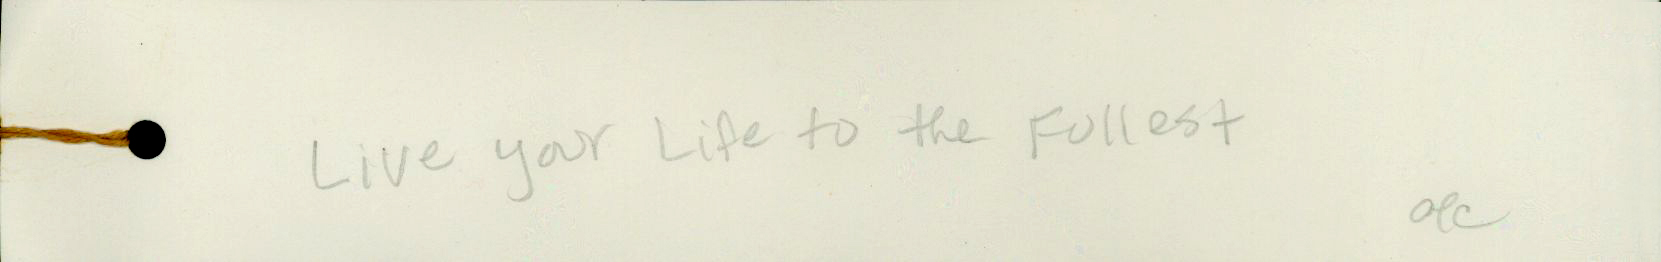 Live your Life to the Fullest